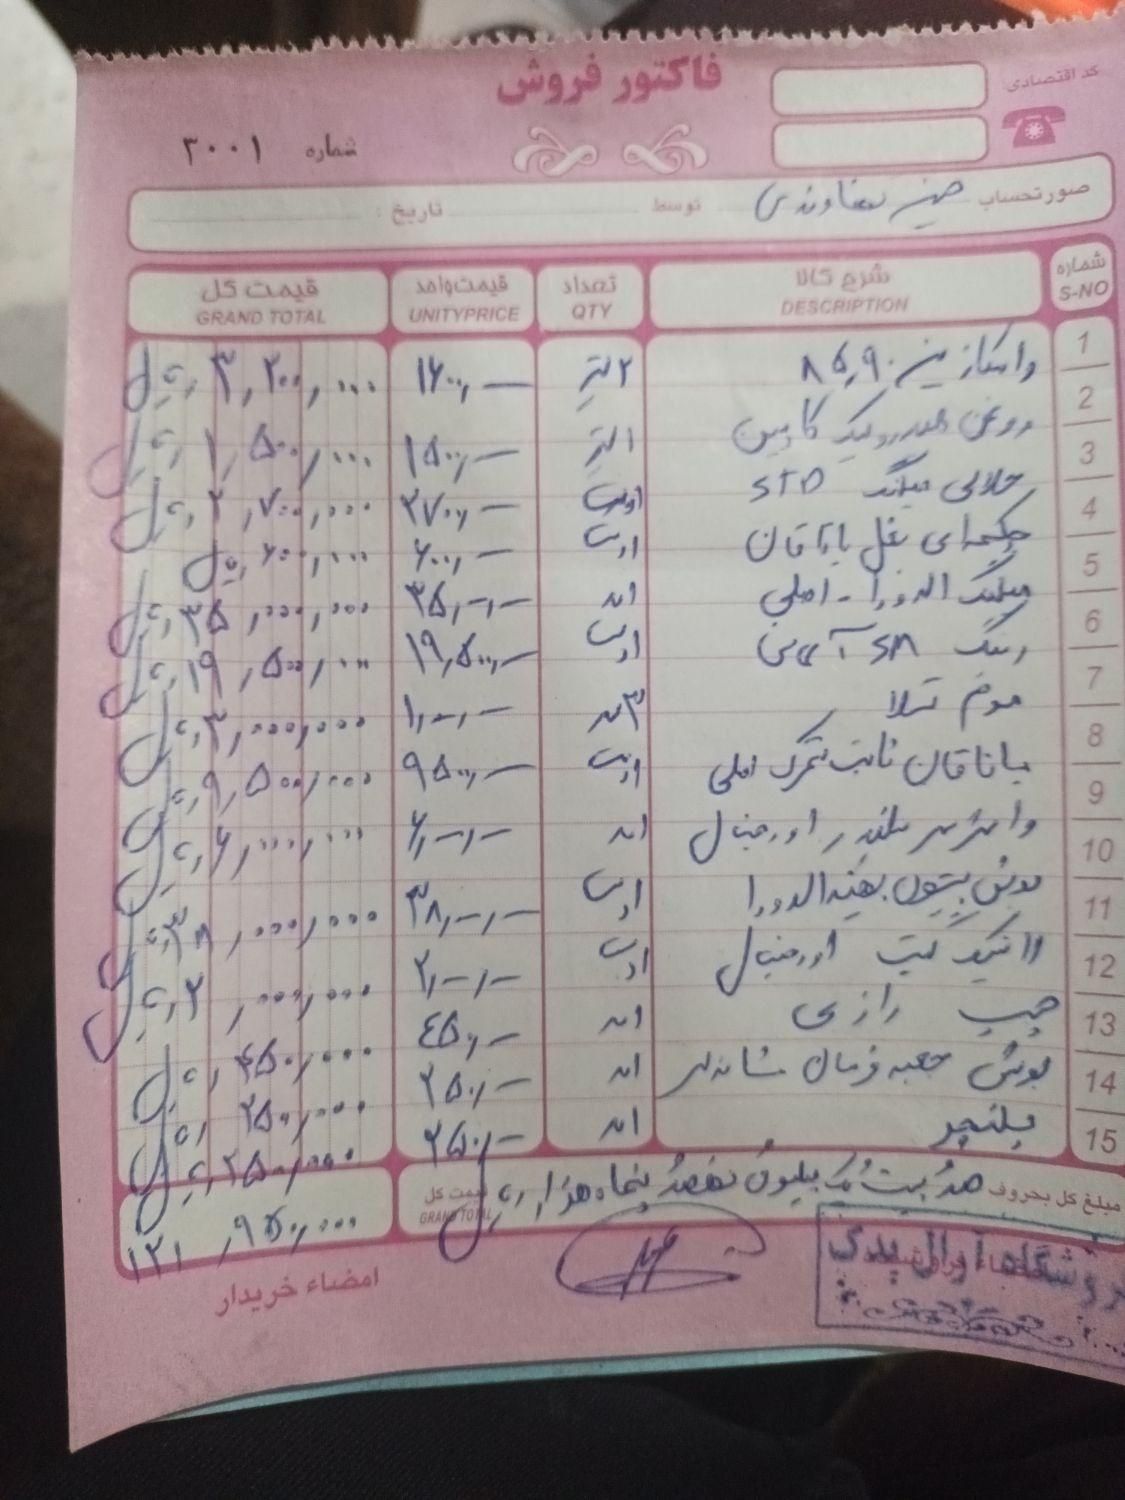 فاکتور فروش
کد اقتصادی:
شماره ۳۰۰۱
صورتحساب توسط تاریخ :
شماره S-NO شرح کالا DESCRIPTION تعداد QTY قیمت واحد UNITYPRICE قیمت کل GRAND TOTAL
1 واسکازین ۸۵,۹۰ ۲ لیتر ۱۶۰۰,— ۳,۲۰۰,۰۰۰ ریال
2 روغن هیدرولیک کاپیتن ۱ لیتر ۱۵۰۰,— ۱,۵۰۰,۰۰۰ ریال
3 خلالی میلنگ STD ۱ دست ۲۷۰۰,— ۲,۷۰۰,۰۰۰ ریال
4 بغل یاتاقان ۱ دست ۶۰۰,— ۶۰۰,۰۰۰ ریال
5 میلنگ الدورا - اصلی ۱ عدد ۳۵,—,— ۳۵,۰۰۰,۰۰۰ ریال
6 رینگ ۱ دست ۱۹,۵۰۰,— ۱۹,۵۰۰,۰۰۰ ریال
7 موم تسلا ۳ عدد ۱,—,— ۳,۰۰۰,۰۰۰ ریال
8 یاتاقان ثابت متحرک اصلی ۱ دست ۹۵۰۰,— ۹,۵۰۰,۰۰۰ ریال
9 واشر سر سیلندر اورجینال ۱ عدد ۶,—,— ۶,۰۰۰,۰۰۰ ریال
10 بوش پیستون بهینه الدورا ۱ دست ۳۸,—,— ۳۸,۰۰۰,۰۰۰ ریال
11 لاستیک گیت اورجینال ۱ دست ۲,—,— ۲,۰۰۰,۰۰۰ ریال
12 چسب رازی ۱ عدد ۴۵۰,— ۴۵۰,۰۰۰ ریال
13 بوش جعبه فرمان ۱ عدد ۲۵۰,— ۲۵۰,۰۰۰ ریال
14 ۱ عدد ۲۵۰,— ۲۵۰,۰۰۰ ریال
15
مبلغ کل بحروف صد و بیست و یک میلیون و نهصد و پنجاه هزار ریال قیمت کل GRAND TOTAL ۱۲۱,۹۵۰,۰۰۰
امضاء خریدار